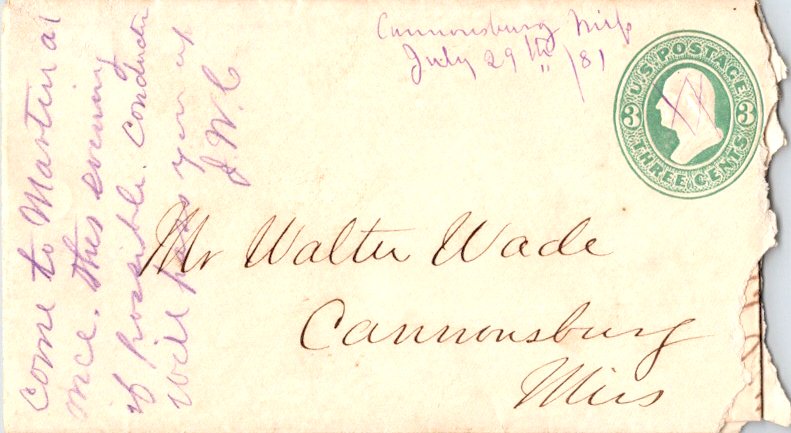 Cannonsburg Miss
July 29th /81
U.S. POSTAGE
3 3
THREE CENTS
Mr Walter Wade
Cannonsburg
Miss
come to Martin at
once. this evening
if possible. conductor
will pass you up
J. W. C